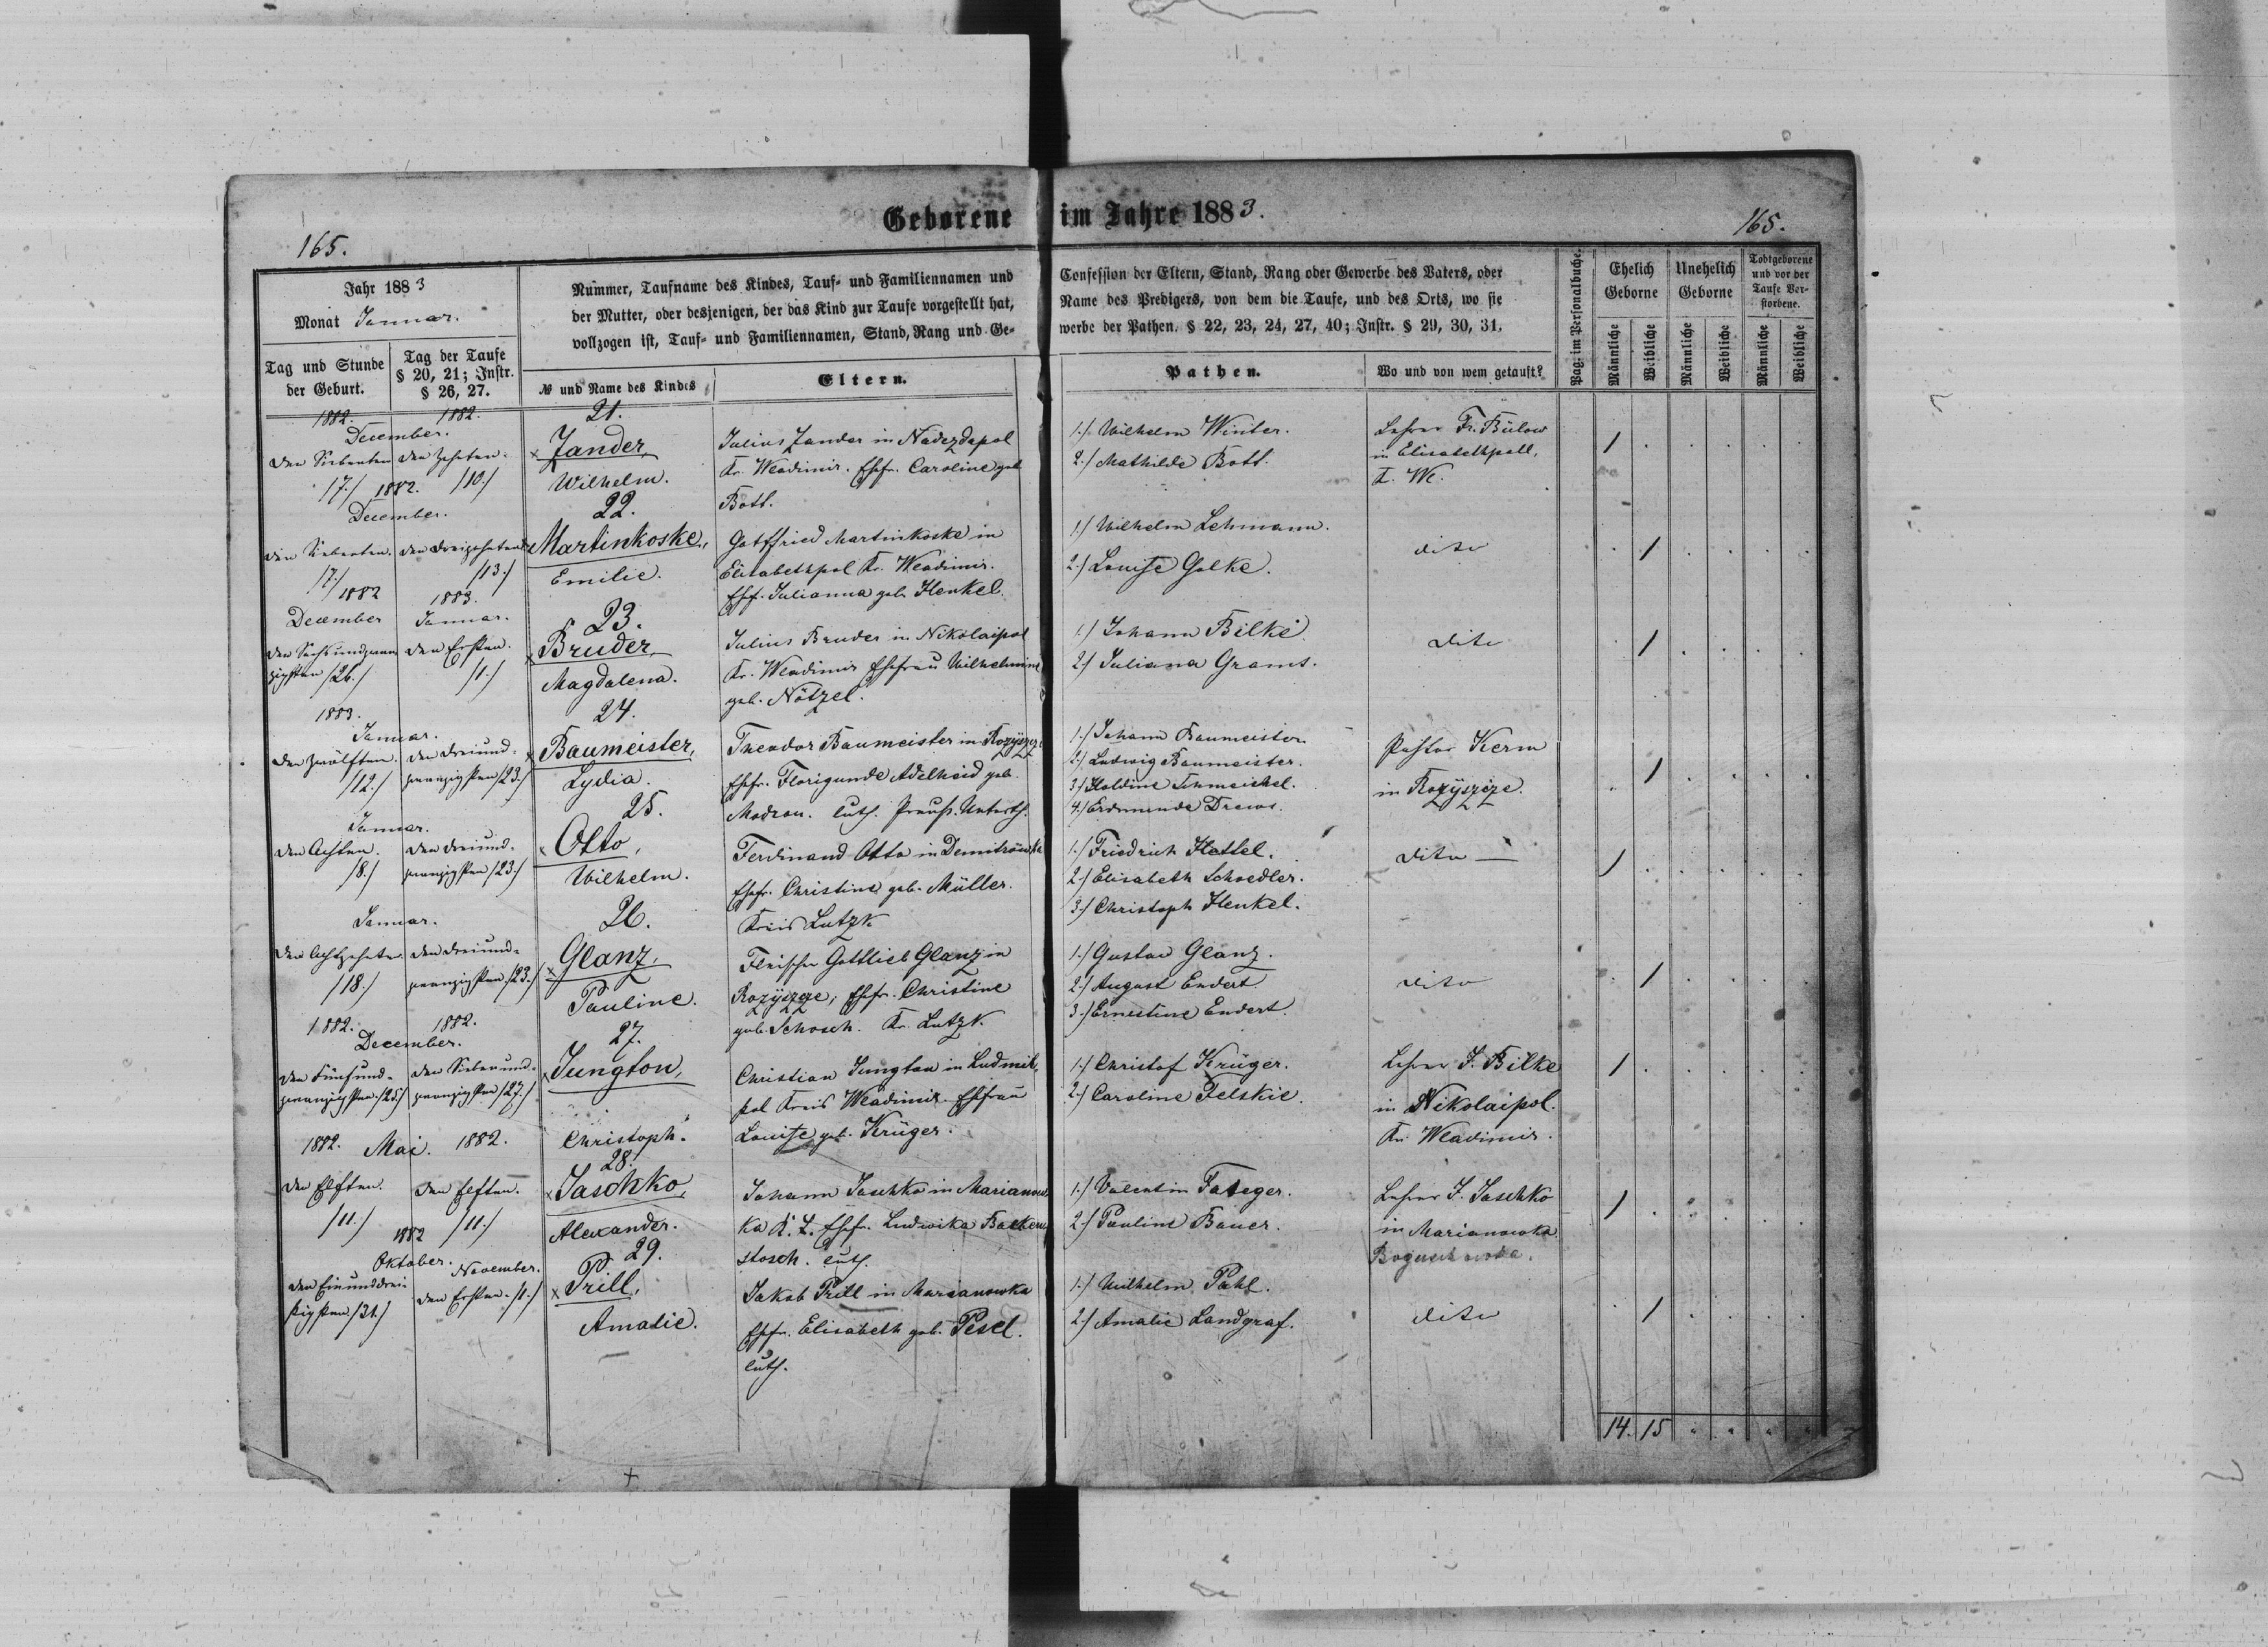 Geborene im Jahre 1883.
165.
165.
Jahr 1883
Monat Januar.
Tag und Stunde der Geburt.
Tag der Taufe § 20, 21; Instr. § 26, 27.
Nummer, Taufname des Kindes, Tauf- und Familiennamen und
der Mutter, oder desjenigen, der das Kind zur Taufe vorgestellt hat,
vollzogen ist, Tauf- und Familiennamen, Stand, Rang und Ge-
№ und Name des Kindes
Eltern.
Confession der Eltern, Stand, Rang oder Gewerbe des Vaters, oder
Name des Predigers, von dem die Taufe, und des Orts, wo sie
werbe der Pathen. § 22, 23, 24, 27, 40; Instr. § 29, 30, 31.
Pathen.
Wo und von wem getauft?
Pag. im Personalbuche.
Ehelich Geborne
Unehelich Geborne
Todtgeborene und vor der Taufe Verstorbene.
Männliche
Weibliche
Männliche
Weibliche
Männliche
Weibliche
1882. 1882.
December.
den Siebenten den Zehnten.
/7./ /10./
21.
Zander,
Wilhelm.
Julius Zander in Nadezdapol
Kr. Wladimir. Ehefr. Caroline geb
Bott.
1./ Wilhelm Winter.
2./ Mathilde Bott.
Lehrer Fr. Bülow
in Elisabethpoll,
K. Wl.
1
1882.
December.
den Siebenten. den Dreizehnten
/7./ /13./
22.
Martinkoske,
Emilie.
Gottfried Martinkoske in
Elisabethpol Kr. Wladimir.
Ehf. Julianna geb Henkel.
1./ Wilhelm Lehmann.
2./ Louise Golke.
dito
1
1882 1883.
December Januar.
den Sechsundzwan den Ersten.
zigsten /26./ /1./
23.
Bruder,
Magdalena.
Julius Bruder in Nikolaipol
Kr. Wladimir Ehefrau Wilhelmine
geb. Nötzel.
1./ Johann Bilke
2./ Juliana Grams.
dito
1
1883.
Januar.
den Zwölften. den Dreiund-
/12./ zwanzigsten /23./
24.
Baumeister,
Lydia.
Theodor Baumeister in Rozyszcze
Ehefr. Florigunde Adelheid geb.
Modrow. luth. Preuß. Unterth.
1./ Johann Baumeister
2./ Ludwig Baumeister.
3./ Holdine Schmeichel.
4./ Erdmunde Drews.
Pastor Kerm
in Rozyszcze.
1
Januar.
den Achten. den Dreiund-
/8./ zwanzigsten /23./
25.
Otto,
Wilhelm.
Ferdinand Otto in Demitrówka
Ehefr. Christine geb. Müller.
Kreis Lutzk
1./ Friedrich Hettel.
2./ Elisabeth Schoedler.
3./ Christoph Henkel.
dito
1
Januar.
den Achtzehnten den Dreiund-
/18./ zwanzigsten /23./
26.
Glanz,
Pauline.
Fleischer Gottlieb Glanz in
Rozyszcze, Ehefr. Christine
geb. Schosch. Kr. Lutzk.
1./ Gustav Glanz.
2./ August Endert
3./ Ernestine Endert.
dito
1
1882. 1882.
December.
den Fünfund- den Siebenund-
zwanzigsten /25./ zwanzigsten /27./
27.
Jungton,
Christoph.
Christian Jungton in Ludmil,
pol Kreis Wladimir Ehefrau
Louise geb. Krüger.
1./ Christof Krüger.
2./ Caroline Felskie.
Lehrer J. Bilke
in Nikolaipol.
Kr. Wladimir.
1
1882. Mai. 1882.
den Elften. den Elften.
/11./ /11./
28.
Jaschko,
Alexander.
Johann Jaschko in Marianow-
ka K. L. Ehefr. Ludwika
stosch. luth.
1./ Valentin
2./ Pauline Bauer.
Lehrer J. Jaschko
in Marianowka
Boguschowka.
1
1882
Oktober. November.
den Einunddrei den Ersten. /1./
ßigsten /31./
29.
Prill,
Amalie.
Jakob Prill in Marianowka
Ehefr. Elisabeth geb. Pesel.
luth.
1./ Wilhelm Pahl.
2./ Amalie Landgraf.
dito
1
14. 15